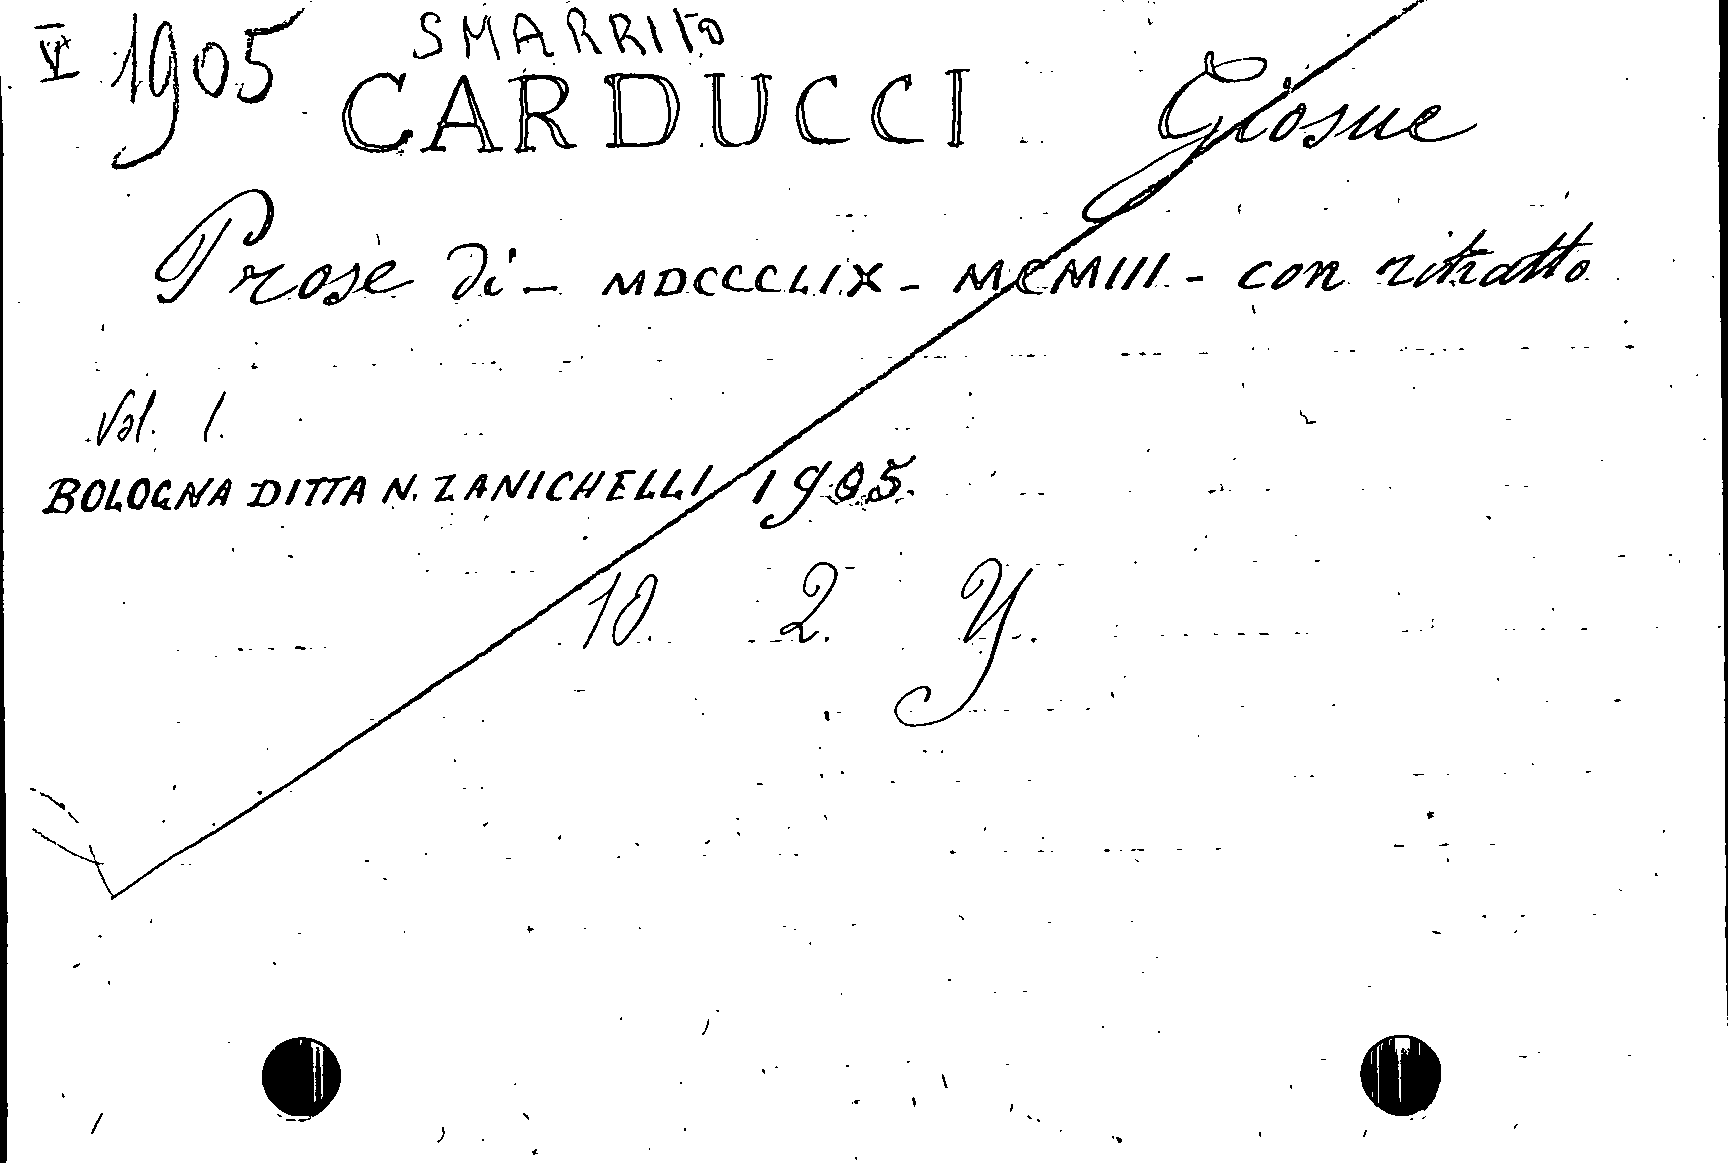 V 1905 SMARRITO
CARDUCCI Giosue
Prose di - MDCCCLIX - MCMIII - con ritratto
Vol. 1.
BOLOGNA DITTA N. ZANICHELLI 1905.
10. 2. Y.